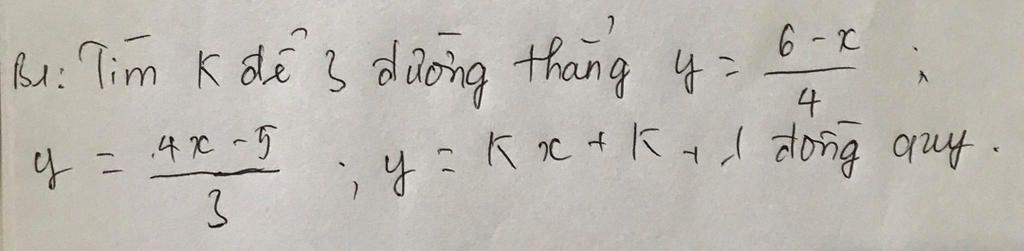 B1: Tìm K để 3 đường thẳng y = (6 - x)/4 ;
y = (4x - 5)/3 ; y = Kx + K + 1 đồng quy.